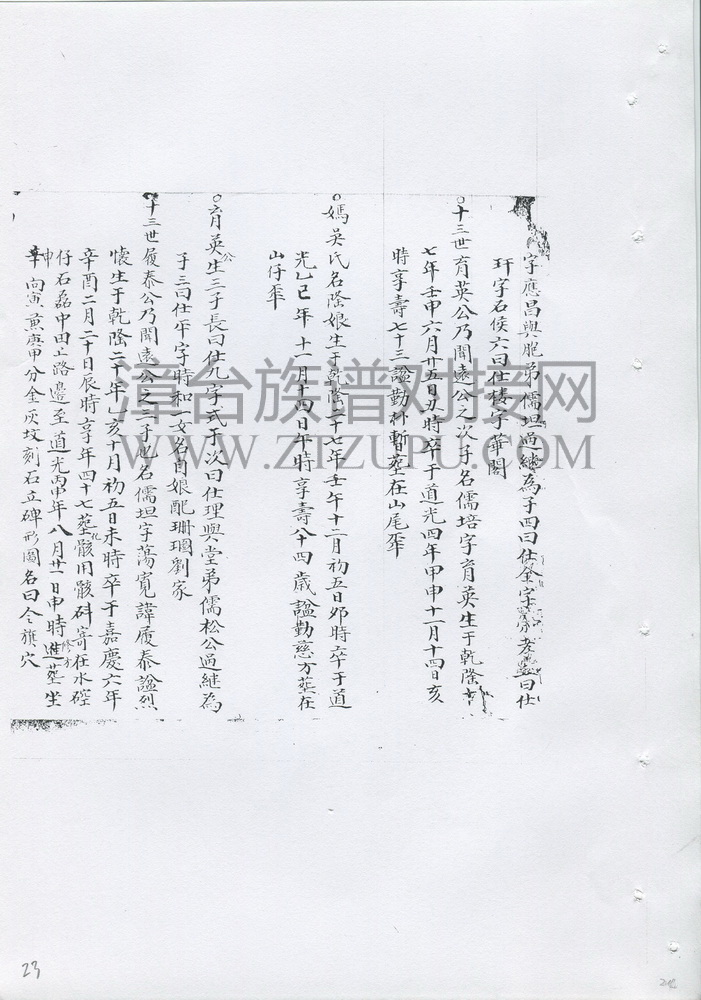 字應昌與胞弟儒坦過継為子四曰仕金字
玕字石侯六曰仕棪字華閣
○十三世育英公乃聞遠公之次子名儒培字育英生于乾隆十
七年壬申六月廿五日丑時卒于道光四年甲申十一月十四日亥
時享壽七十三諡勤朴暫塟在山尾𡊄
○媽吳氏名隆娘生于乾隆二十七年壬午十二月初五日夘時卒于道
光乙巳年十一月十四日午時享壽八十四歲諡勤慈方塟在
山仔𡊄
○育英公生三子長曰仕九字式于次曰仕理與堂弟儒松公過継為
子三曰仕平字時和一女名自娘配珊瑚劉家
○十三世履泰公乃聞遠公之三子也名儒坦字蕩寬諱履泰諡烈
懷生于乾隆二十年乙亥十月初五日未時卒于嘉慶六年
辛酉二月二十日辰時享年四十七塟骸用骸礶寄在水磘
仔石磊中田上路邊至道光丙申年八月廿一日申時進塟坐
申向寅兼庚甲分金灰坟刻石立碑形圖名曰令旗穴
章台族谱对接网
WWW.ZTZUPU.COM
23
24